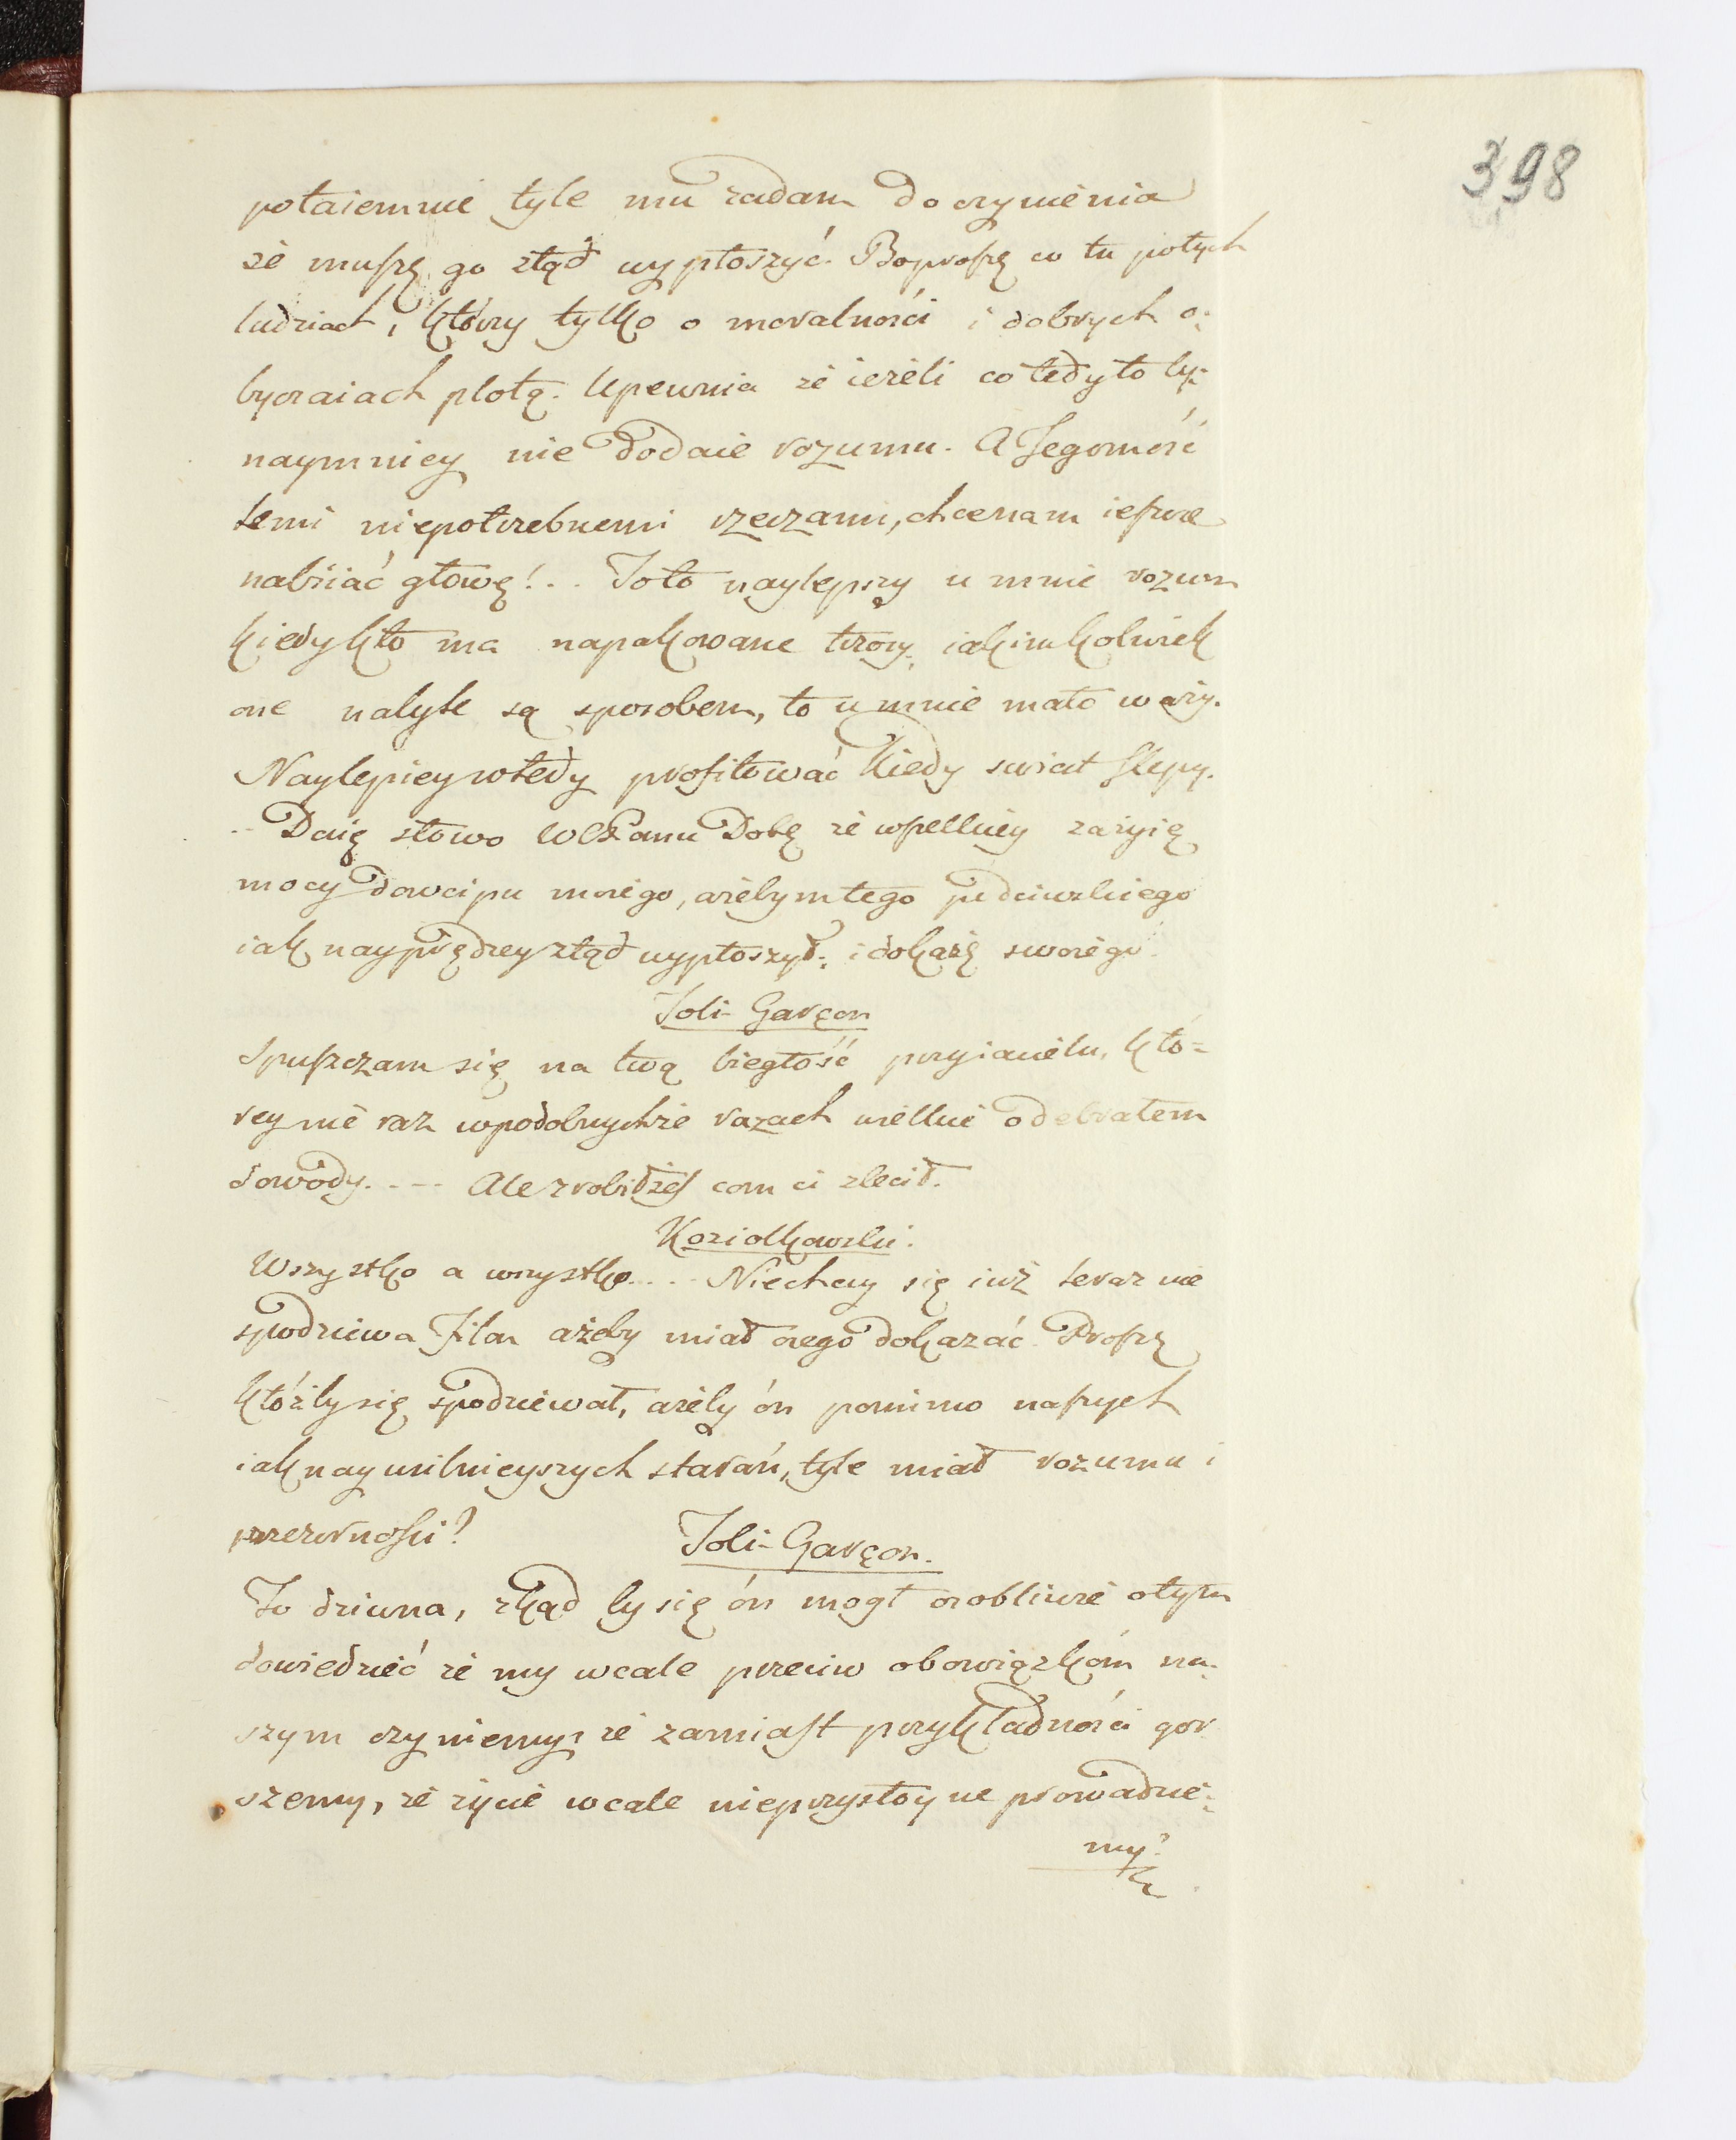 398
potaiemnie tyle mu zadam do czynienia
że muszę go ztąd wypłoszyć. Bo proszę co tu po tych
ludziach, którzy tylko o moralności i dobrych o:
byczaiach plotą. Upewnia że ieżeli co tedy to by:
naymniey nie dodaie rozumu. A Jegomość
temi niepotrzebnemi rzeczami, chce nam ieszcze
nabiiać głowę!.. To to naylepszy u mnie rozum
kiedy kto ma napakowane trzosy; iakimkolwiek
one nabyte są sposobem, to u mnie mało waży.
Naylepiey wtedy profitować kiedy swiat slepy.
-- Daię słowo WCPanu Dobę że wszelkiey zażyię
mocy dowcipu moiego, ażebym tego pedciwskiego
iak nayprędzey ztąd wypłoszył; i dokażę swoiego.
Joli-Garçon
Spuszczam się na twą biegłość przyiacielu, któ=
rey nie raz w podobnychże razach wielkie odebrałem
dowody.--- Ale zrobiłżeś com ci zlecił.
Koziołkowski.
Wszystko a wszystko.... Niechay się iuż teraz nie
spodziewa Filon ażeby miał czego dokazać. Proszę
któżby się spodziewał, ażeby ón pomimo naszych
iak nayusilnieyszych starań, tyle miał rozumu i
przezorności?
Joli-Garçon.
To dziwna, zkąd by się ón mogł osobliwie o tym
dowiedzieć że my wcale przeciw obowiązkóm na:
szym czyniemy, że zamiast przykładności gor
szemy, że życie wcale nieprzystoyne prowadzie:
my?